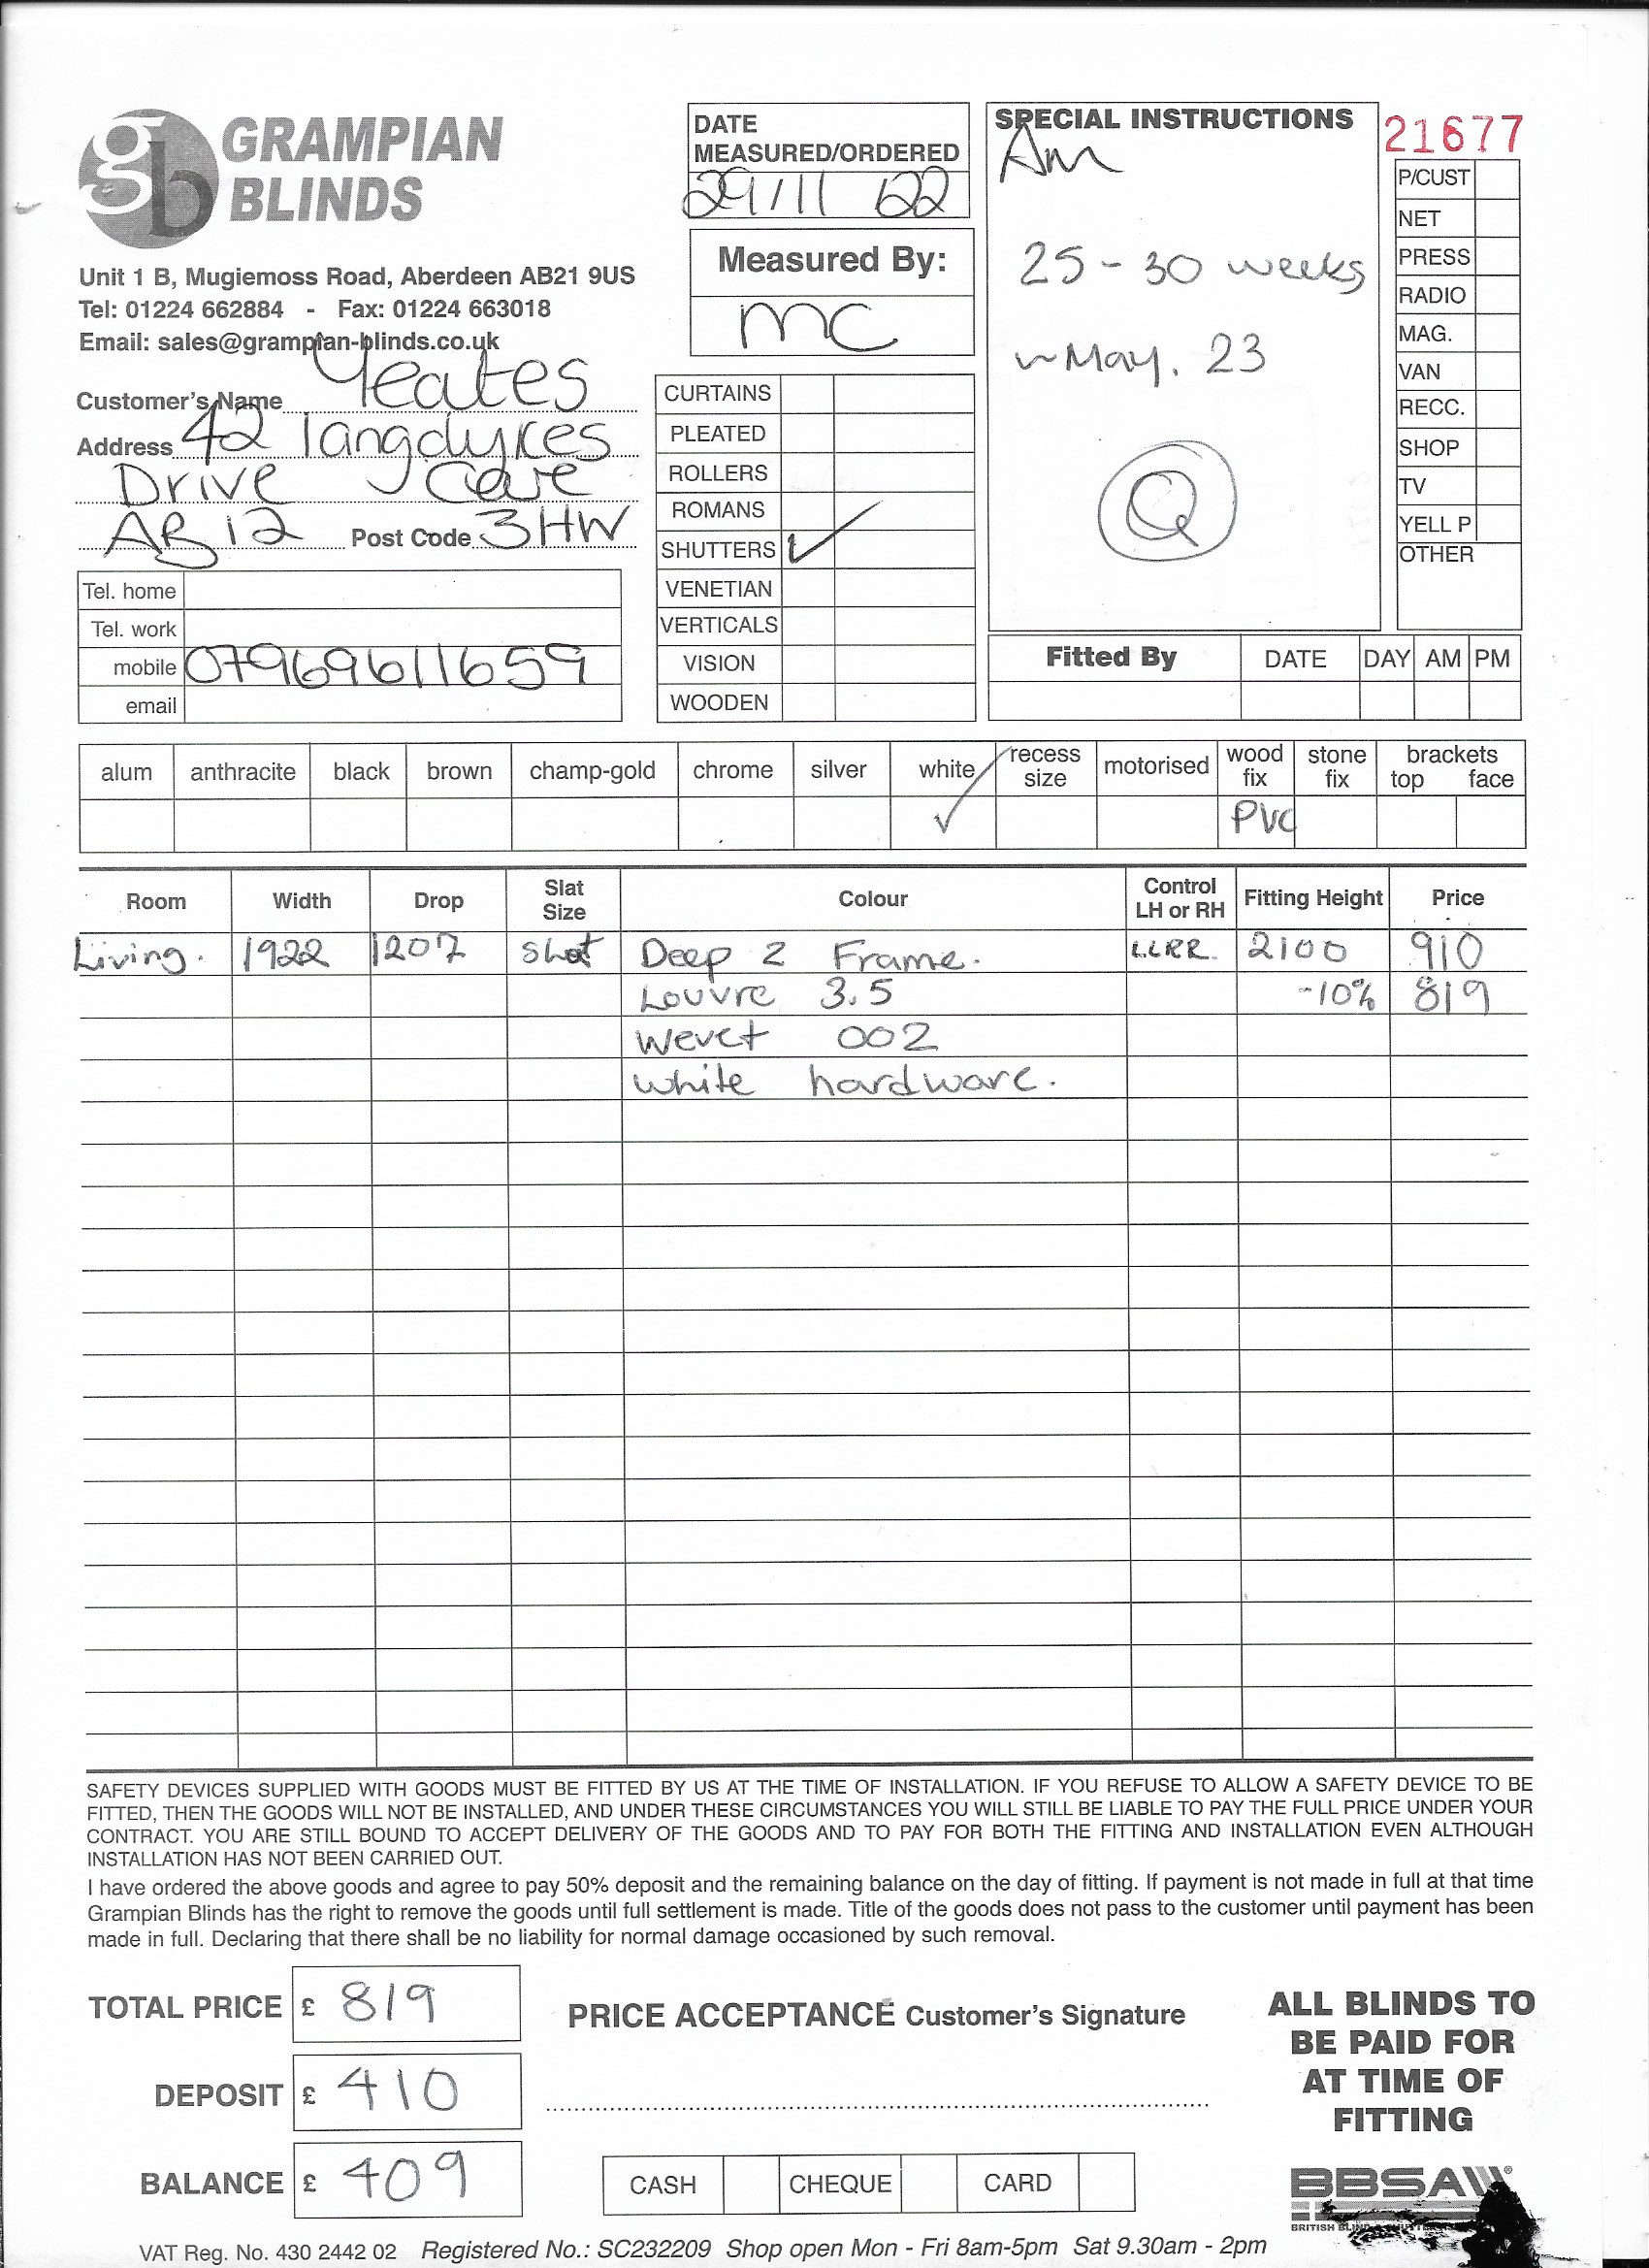 gb GRAMPIAN
BLINDS
Unit 1 B, Mugiemoss Road, Aberdeen AB21 9US
Tel: 01224 662884 - Fax: 01224 663018
Email: sales@grampian-blinds.co.uk
Customer's Name Yeates
Address 42 Langdykes
Drive Cove
AB12 Post Code 3HW
Tel. home
Tel. work
mobile 07969611659
email
DATE
MEASURED/ORDERED
29/11 22
Measured By:
MC
CURTAINS
PLEATED
ROLLERS
ROMANS
SHUTTERS ✓
VENETIAN
VERTICALS
VISION
WOODEN
SPECIAL INSTRUCTIONS
Am
25 - 30 weeks
~ May. 23
Q
21677
P/CUST
NET
PRESS
RADIO
MAG.
VAN
RECC.
SHOP
TV
YELL P
OTHER
Fitted By DATE DAY AM PM
alum anthracite black brown champ-gold chrome silver white recess size motorised wood fix stone fix brackets top face
✓ PVC
Room Width Drop Slat Size Colour Control LH or RH Fitting Height Price
Living. 1922 1207 Shut Deep Z Frame. LLRR. 2100 910
Louvre 3.5 -10% 819
Wevet 002
white hardware.
SAFETY DEVICES SUPPLIED WITH GOODS MUST BE FITTED BY US AT THE TIME OF INSTALLATION. IF YOU REFUSE TO ALLOW A SAFETY DEVICE TO BE
FITTED, THEN THE GOODS WILL NOT BE INSTALLED, AND UNDER THESE CIRCUMSTANCES YOU WILL STILL BE LIABLE TO PAY THE FULL PRICE UNDER YOUR
CONTRACT. YOU ARE STILL BOUND TO ACCEPT DELIVERY OF THE GOODS AND TO PAY FOR BOTH THE FITTING AND INSTALLATION EVEN ALTHOUGH
INSTALLATION HAS NOT BEEN CARRIED OUT.
I have ordered the above goods and agree to pay 50% deposit and the remaining balance on the day of fitting. If payment is not made in full at that time
Grampian Blinds has the right to remove the goods until full settlement is made. Title of the goods does not pass to the customer until payment has been
made in full. Declaring that there shall be no liability for normal damage occasioned by such removal.
TOTAL PRICE £ 819
DEPOSIT £ 410
BALANCE £ 409
PRICE ACCEPTANCE Customer's Signature
CASH CHEQUE CARD
ALL BLINDS TO
BE PAID FOR
AT TIME OF
FITTING
BBSA
BRITISH
VAT Reg. No. 430 2442 02 Registered No.: SC232209 Shop open Mon - Fri 8am-5pm Sat 9.30am - 2pm